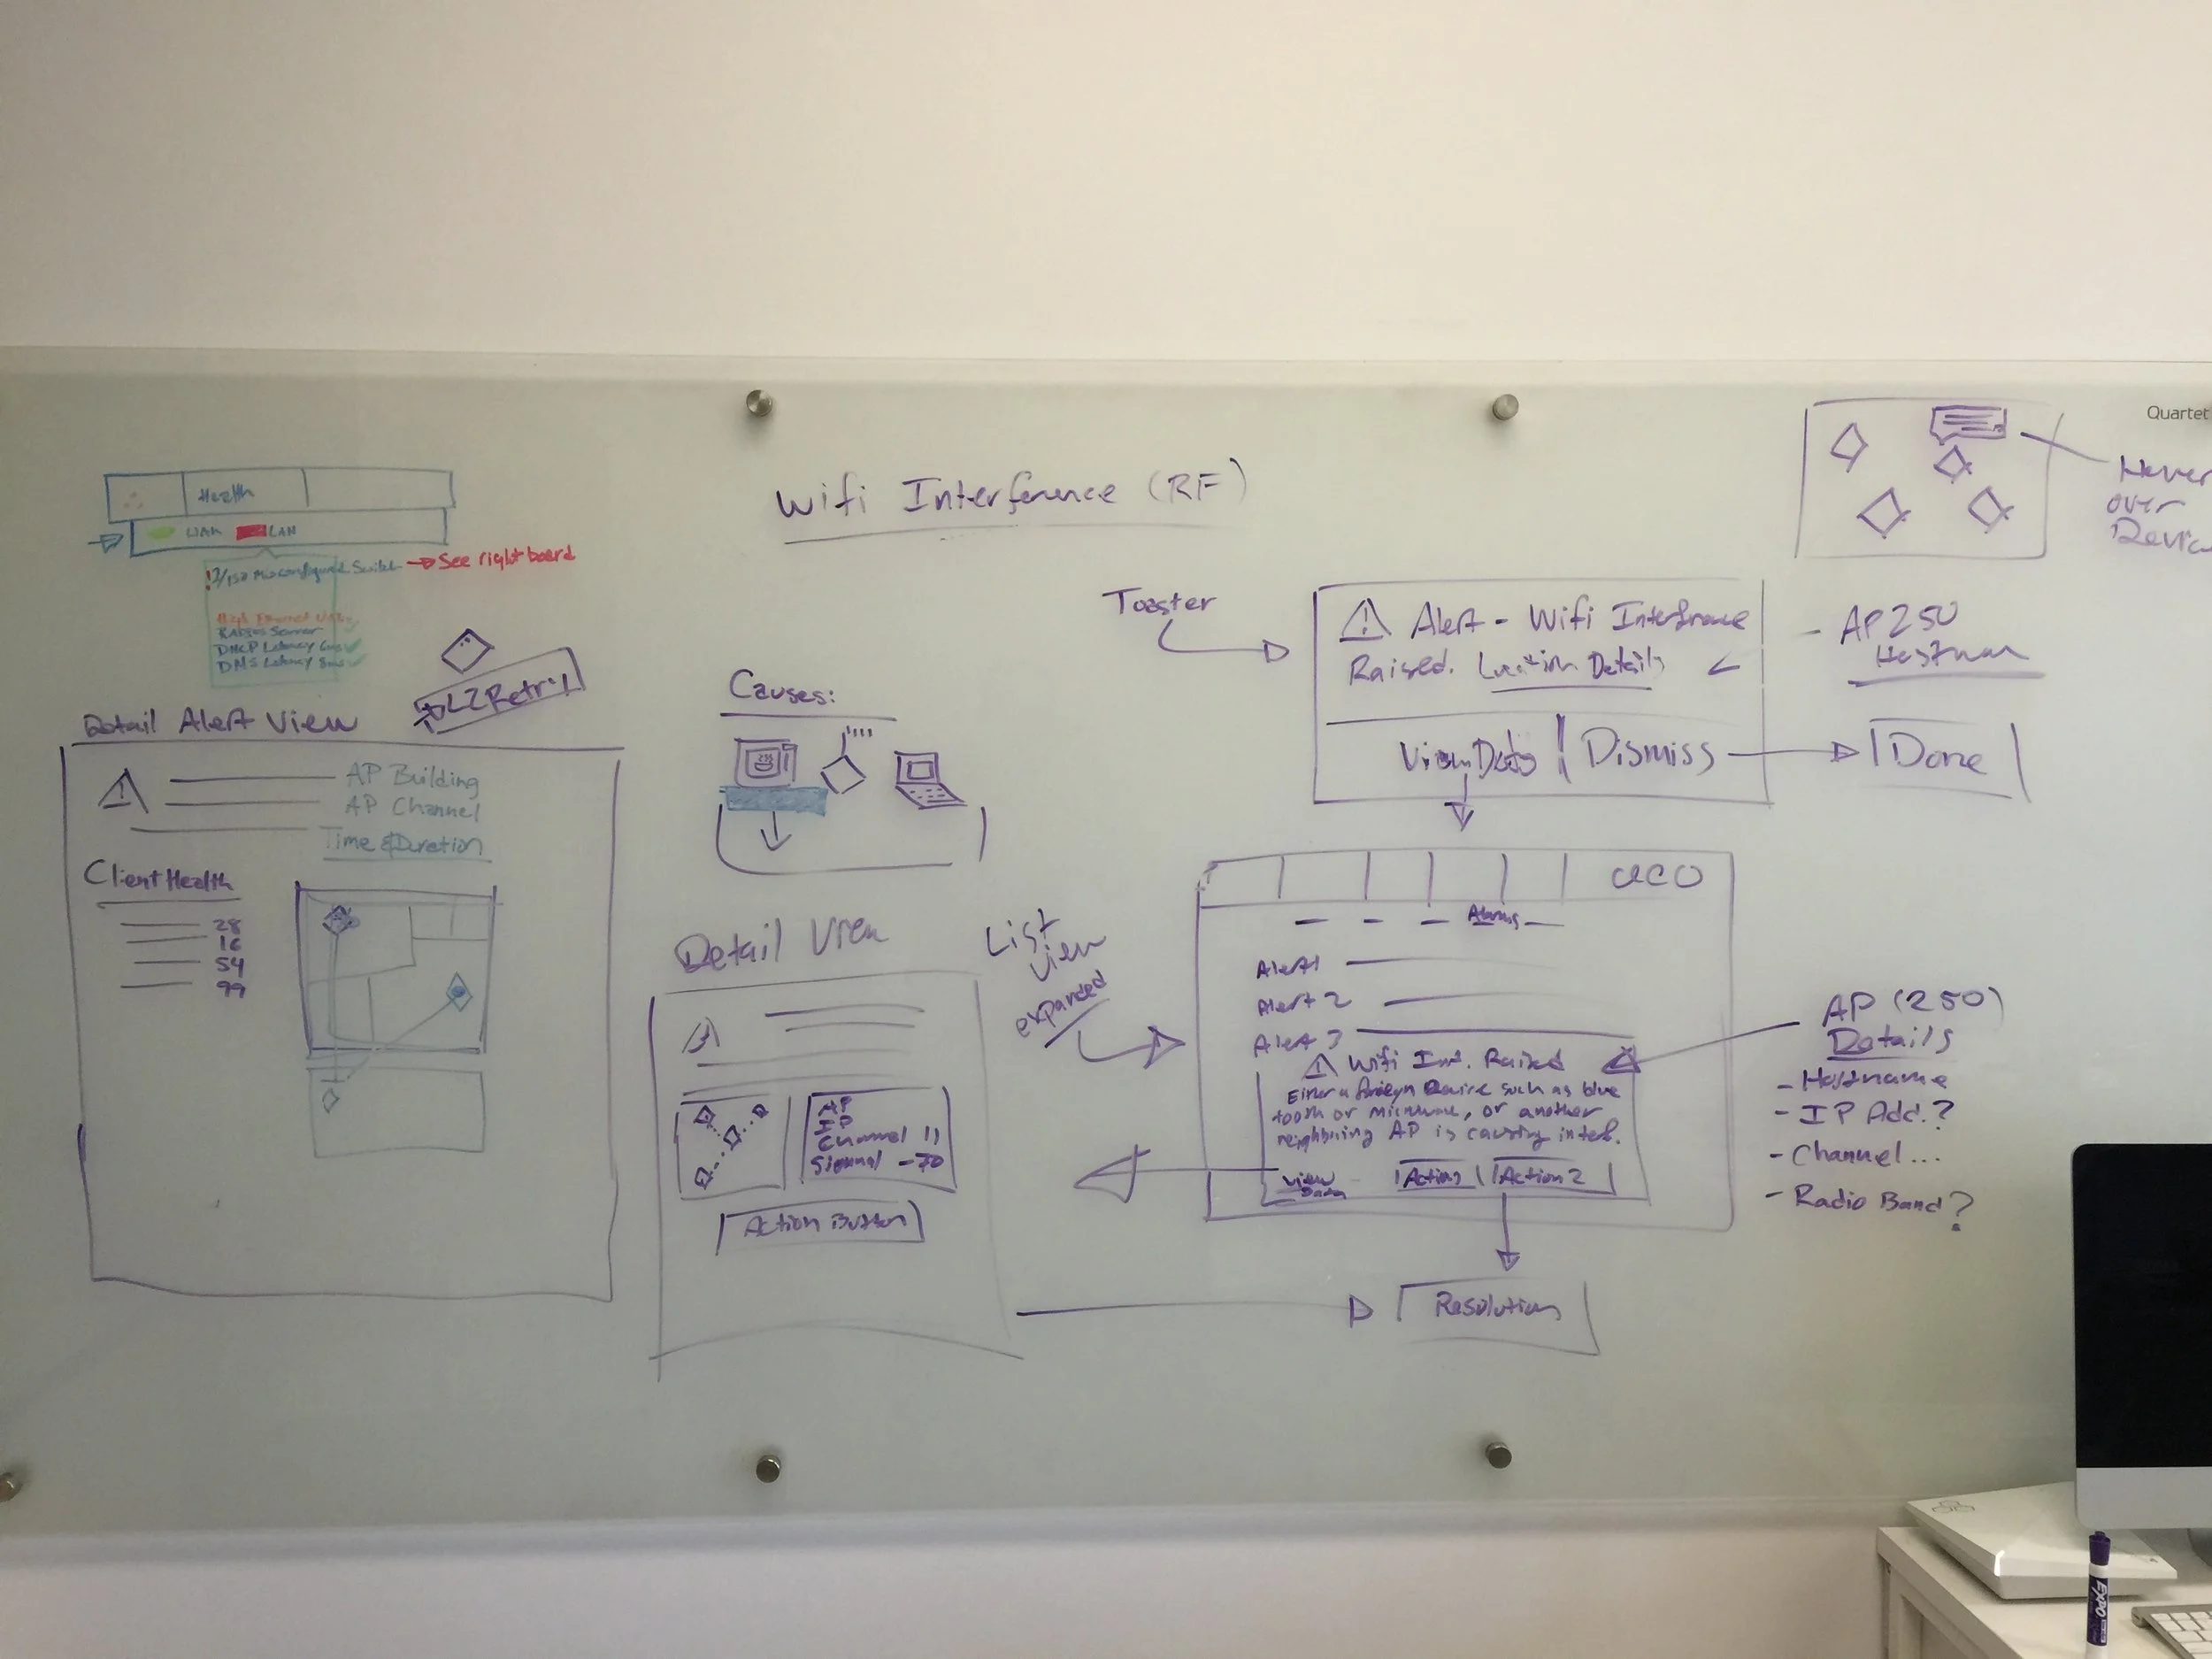 Quartet
Health
WAN LAN
! 2/150 Misconfigured Switch → See right board
High Ethernet
Radius Server
DHCP Latency 6ms ✓
DNS Latency 8ms ✓
L2 Retry
Wifi Interference (RF)
Hover
over
Device
Toaster
Alert - Wifi Interfrence
Raised. Location Details
View Data
Dismiss
Done
- AP 250
Hostname
Causes:
Detail Alert View
AP Building
AP Channel
Time & Duration
Client Health
28
16
54
99
Detail View
AP
IP
Channel 11
Signal -70
Action Button
List
View
expanded
Alarms
Alert 1
Alert 2
Alert 3
Wifi Int. Raised
Either a foreign Device such as blue
tooth or microwave, or another
neighboring AP is causing interf.
View
Data
Action 1
Action 2
Resolution
AP (250)
Details
- Hostname
- IP Add.?
- Channel...
- Radio Band?
EXPO